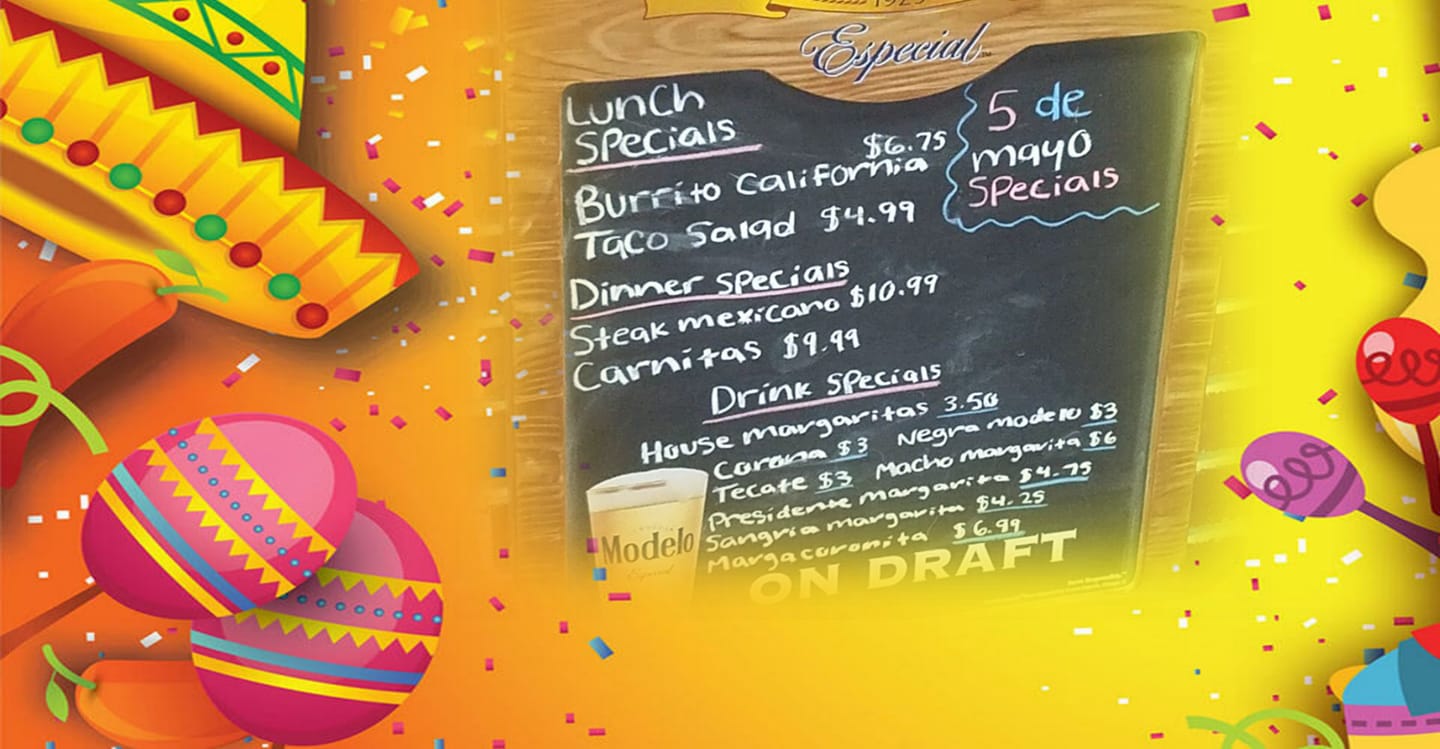 1925
Especial
Lunch
Specials
$6.75
Burrito California
Taco Salad $4.99
5 de
mayo
Specials
Dinner Specials
Steak mexicano $10.99
Carnitas $9.99
Drink Specials
House margaritas 3.50
Corona $3 Negra modelo $3
Tecate $3 Macho margarita $6
Presidente margarita $4.75
Sangria margarita $4.25
Margacoronita $6.99
Modelo
Especial
ON DRAFT